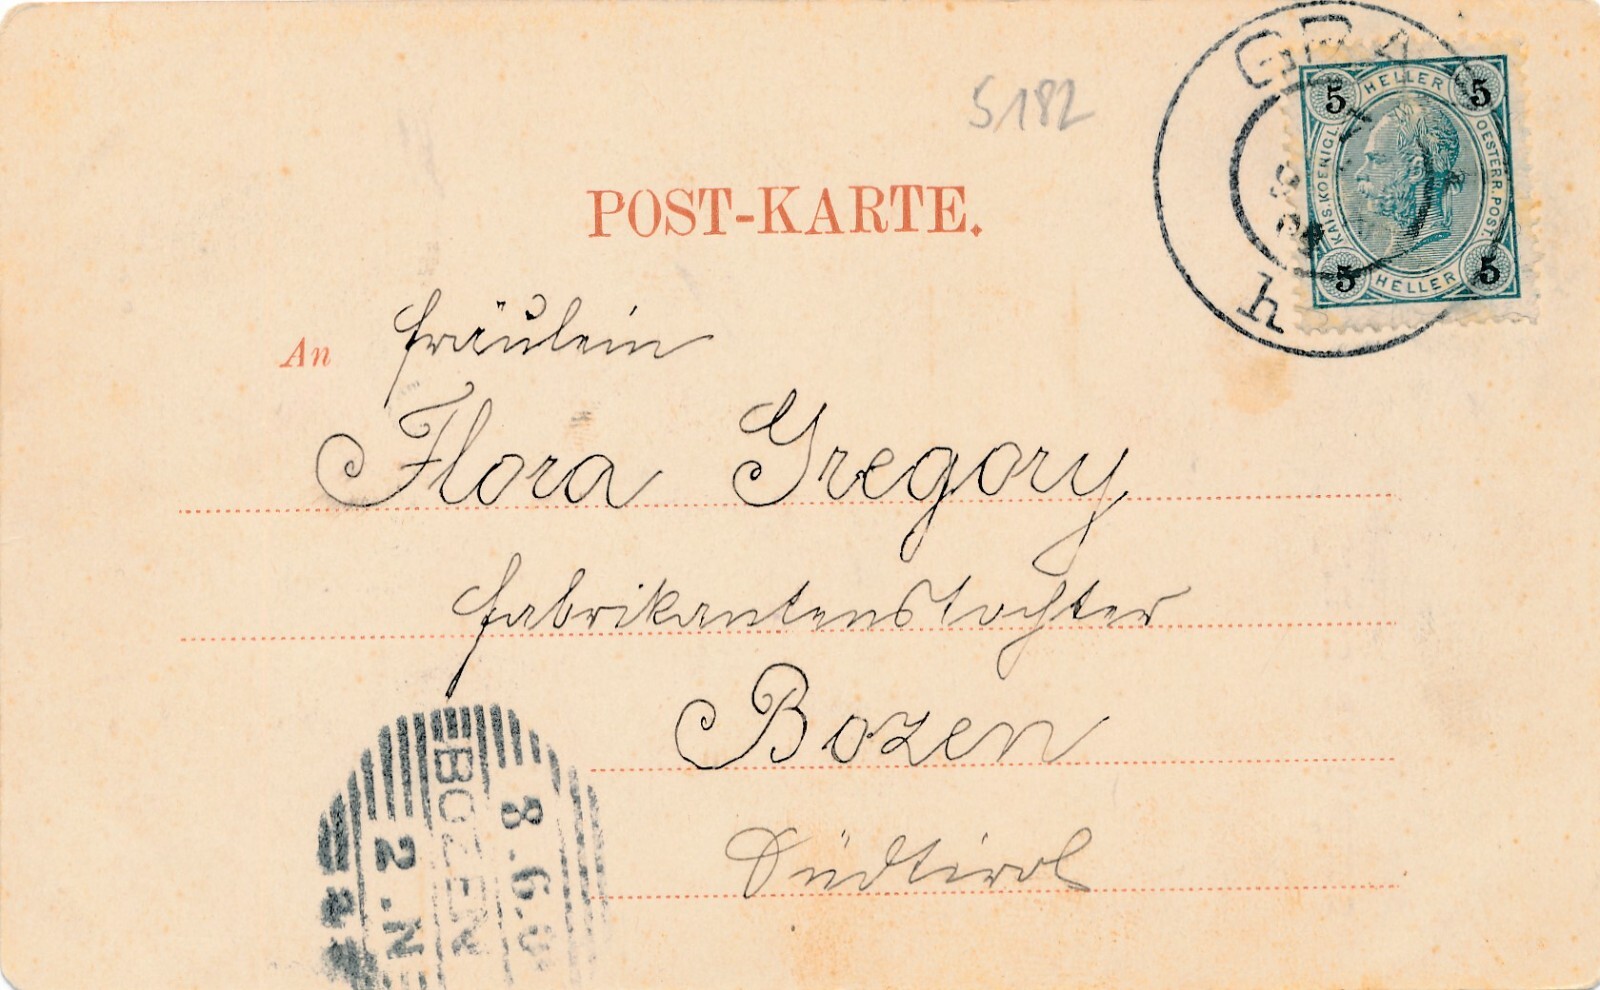 5182
GRA
h
5 HELLER 5
KAIS.KOENIGL. OESTERR.POST.
5 HELLER 5
POST-KARTE.
An Fräulein
Flora Gregory
Fabrikantenstochter
Bozen
Südtirol
BOZEN
8.6.0
2.N